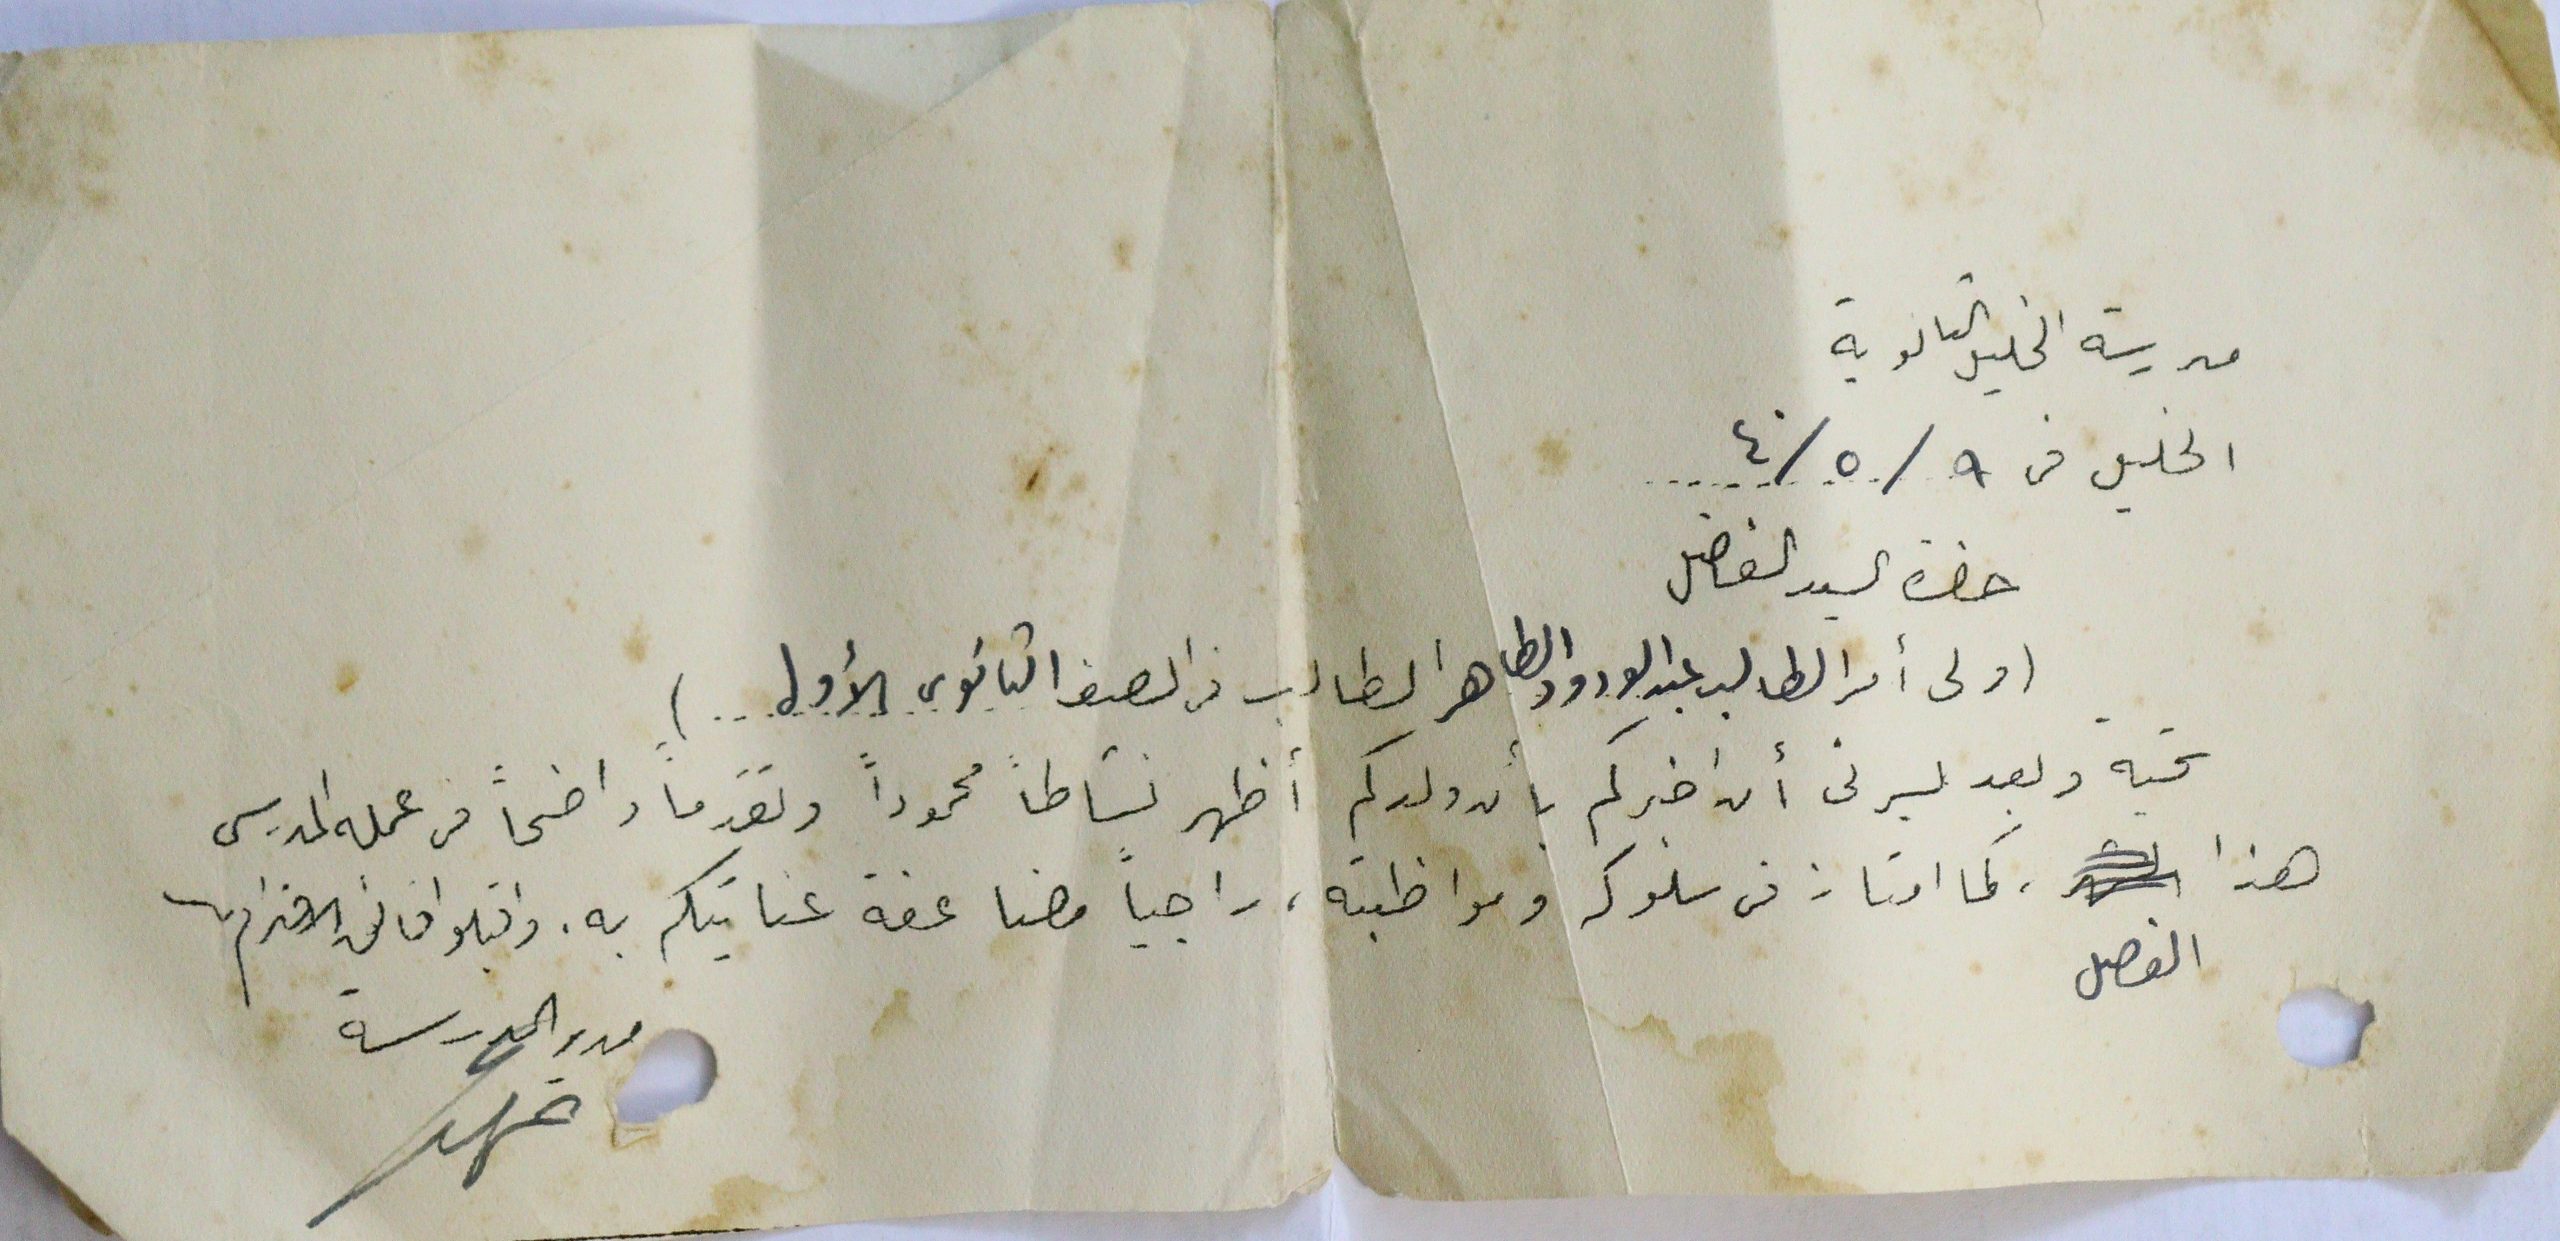 مدرسة الخليل الثانوية
الخليل في ٩ / ٥ / ٤٠
حضرة السيد الفاضل
(ولي أمر الطالب عبد الودود الطاهر الطالب في الصف الثانوي الأول)
تحية وبعد يسرني أن اخبركم بأن ولدكم أظهر نشاطاً محموداً وتقدماً واضحاً في عمله المدرسي
هذا ، كما امتاز في سلوكه ومواظبته ، راجياً مضاعفة عنايتكم به . واقبلوا فائق الاحترام
الفصل
مدير المدرسة